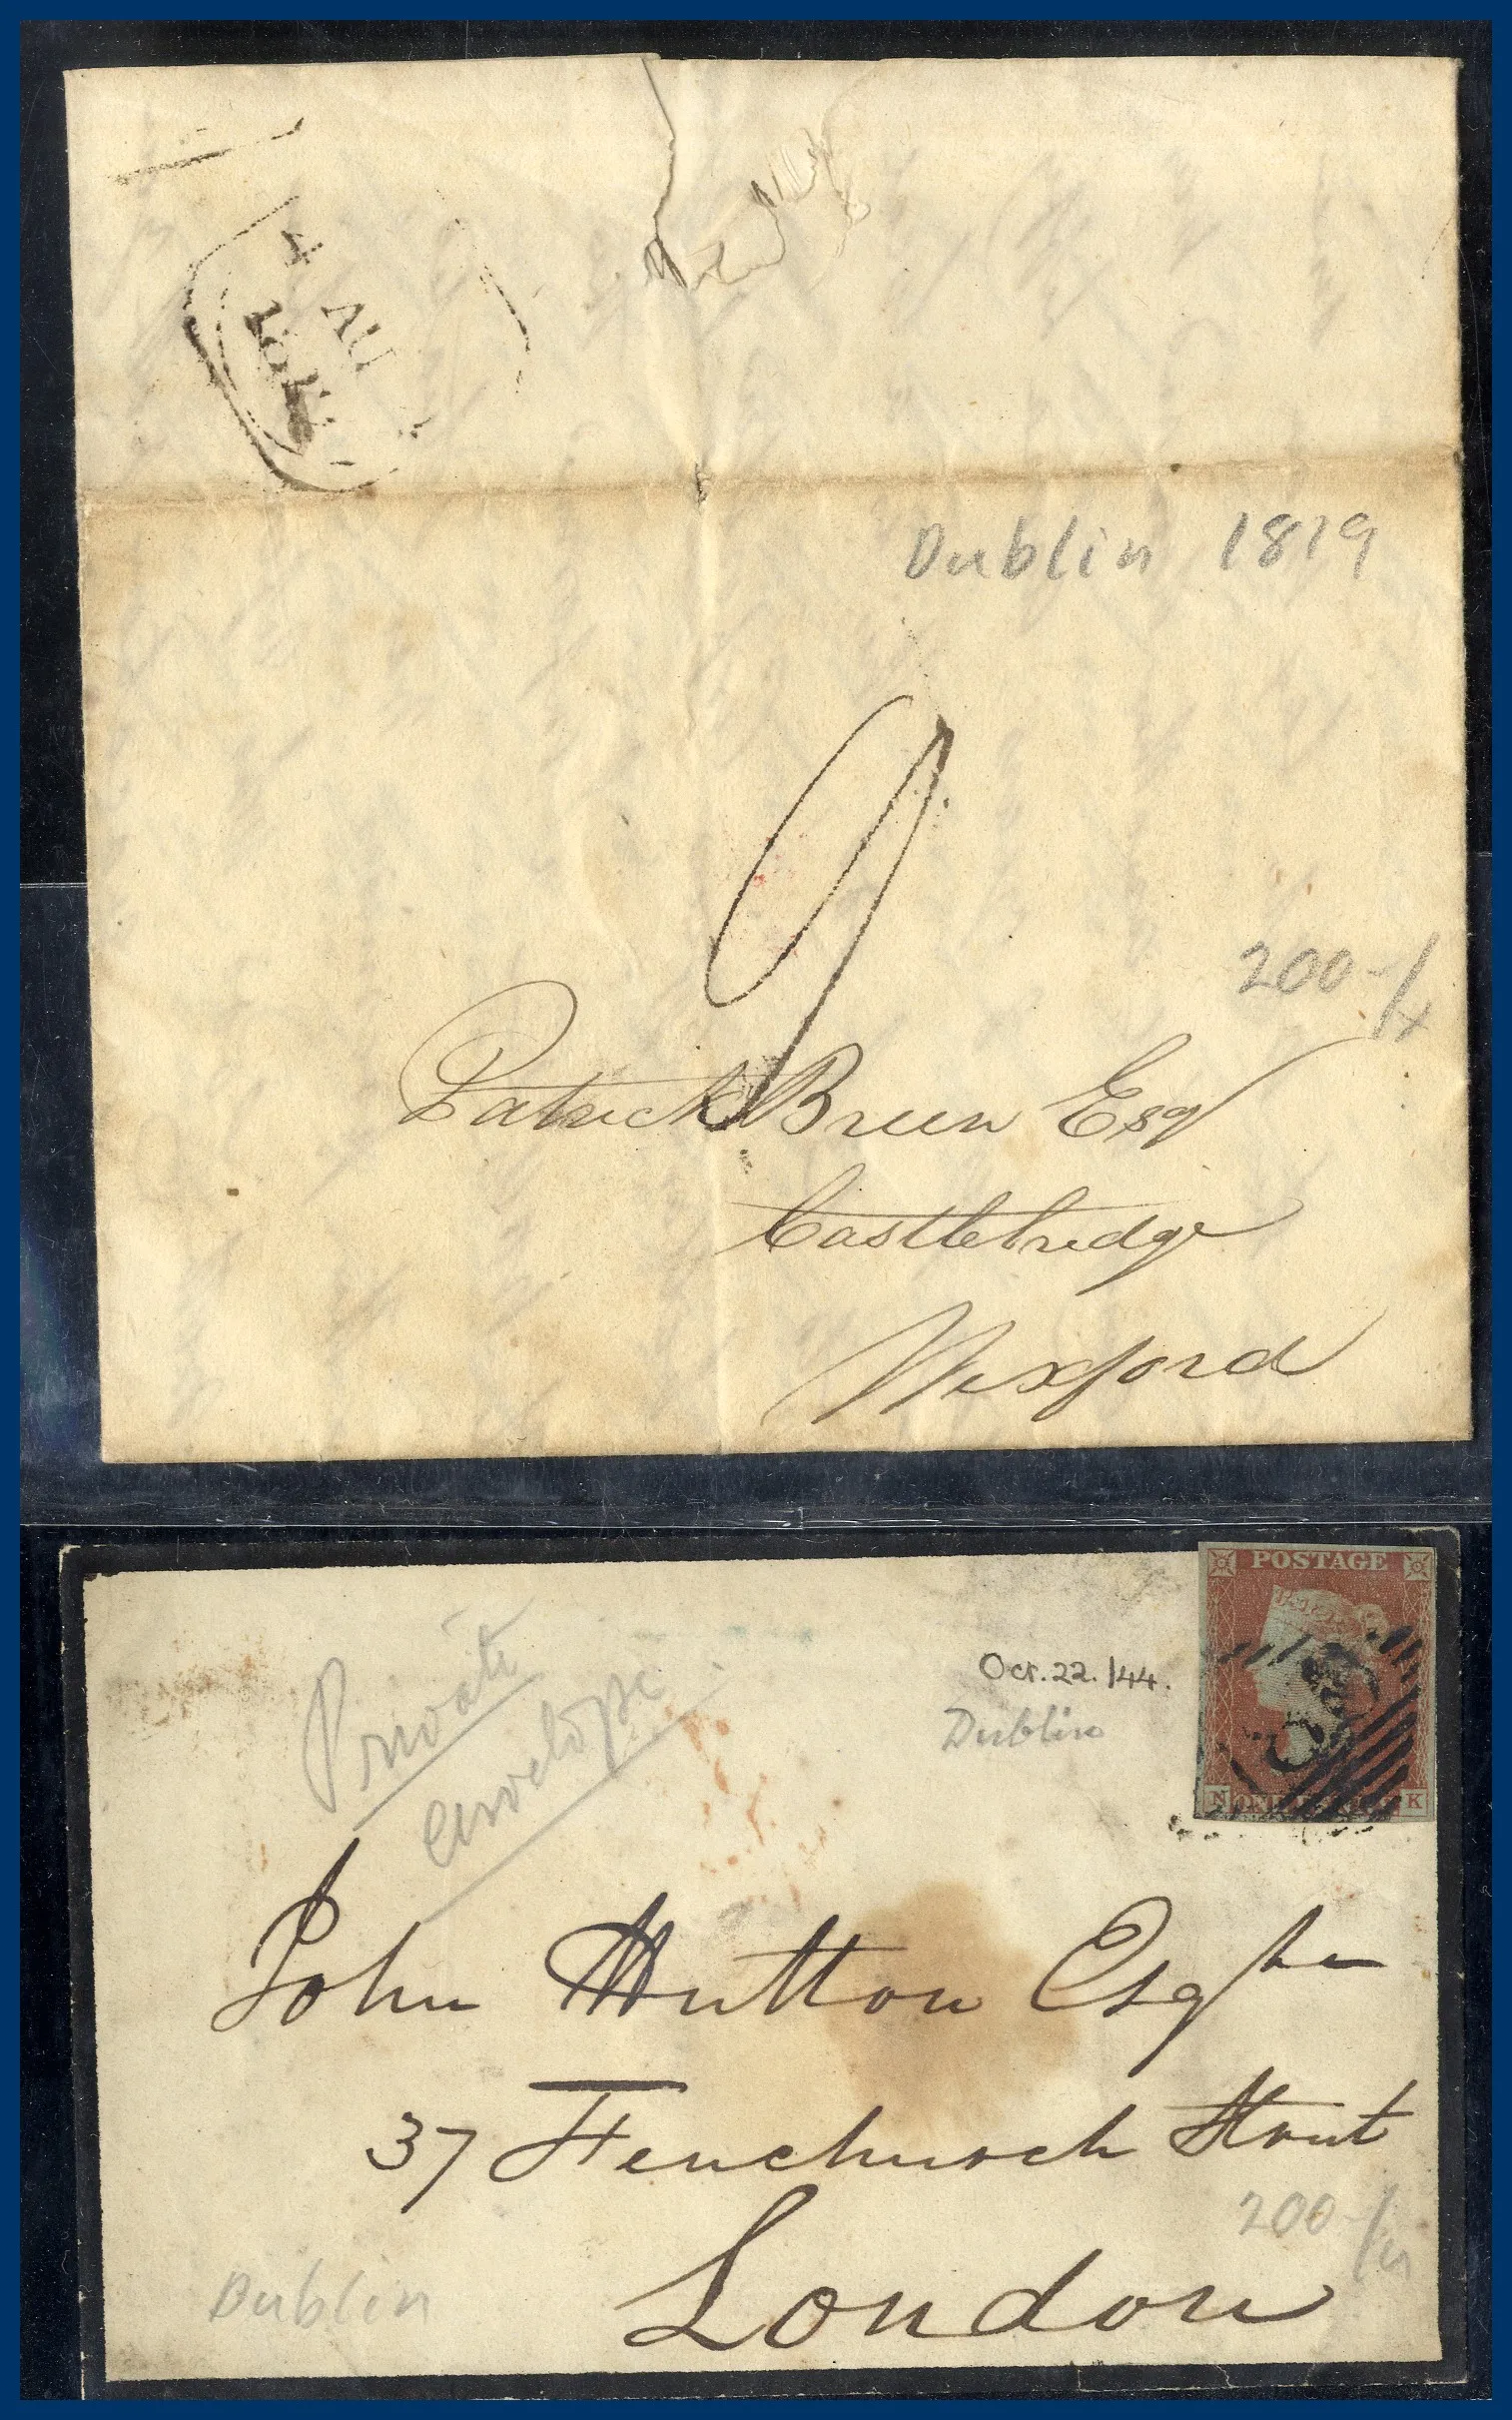 4
AU
Dublin 1819
9
200-/
Patrick Breen Esq
Castlebridge
Wexford
POSTAGE
Oct. 22. /44.
Dublin
Private
envelope
N ONE K
John Hutton Esqre
37 Fenchurch Street
London
200-/
Dublin